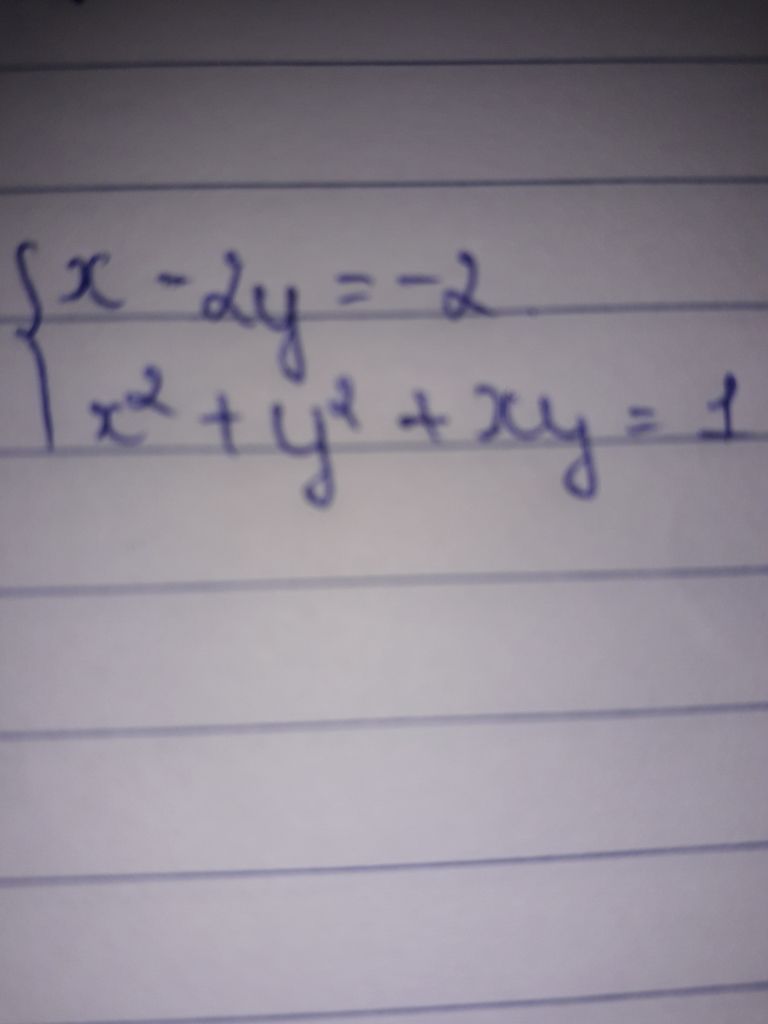 {x - 2y = -2
x² + y² + xy = 1